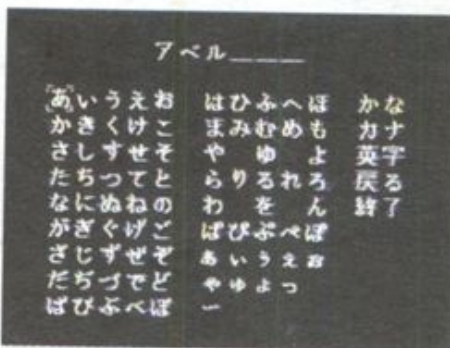 アベル____
あいうえお はひふへほ かな
かきくけこ まみむめも カナ
さしすせそ や ゆ よ 英字
たちつてと らりるれろ 戻る
なにぬねの わ を ん 終了
がぎぐげご ぱぴぷぺぽ
ざじずぜぞ ぁぃぅぇぉ
だぢづでど ゃゅょっ
ばびぶべぼ ー